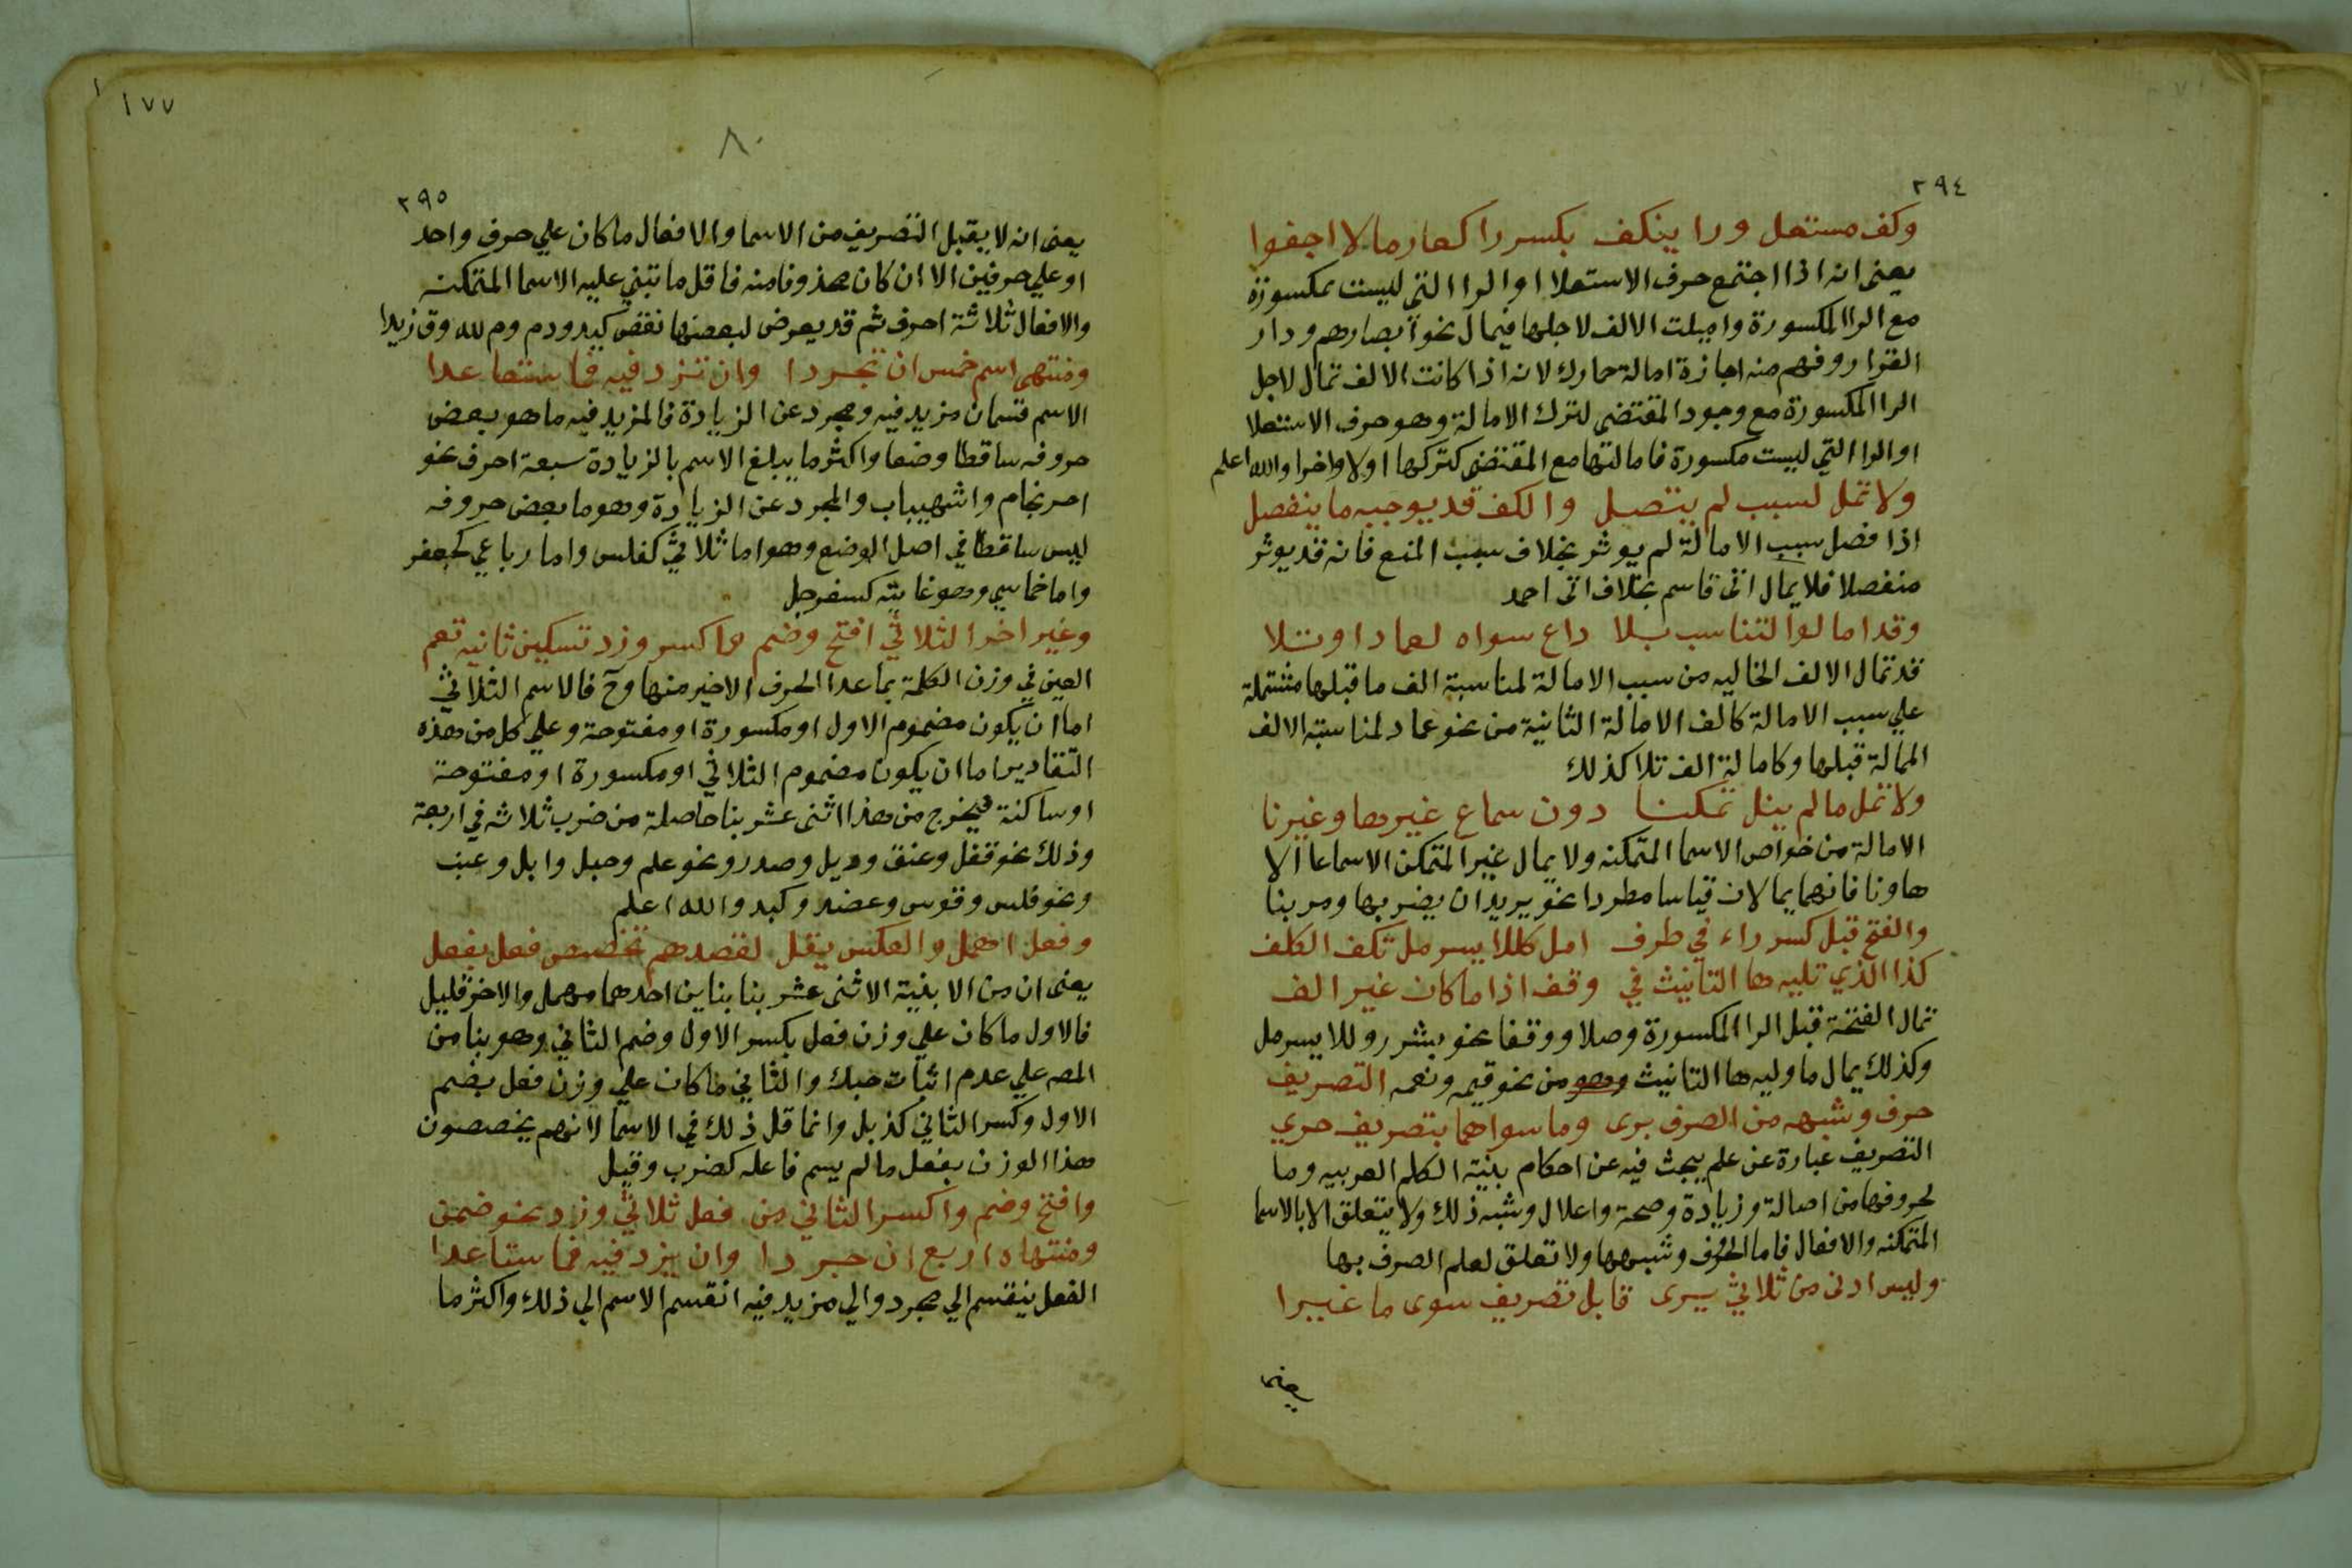 ٢٩٤
وكف مستعل ورا ينكف بكسر را كعارما لا اجفوا
يعنى انه اذا اجتمع حرف الاستعلا او الرا التى ليست بمكسورة
مع الرا المكسورة واميلت الالف لاجلها فيمال نحو ابصارهم ودار
القرار وفهم منه اجازة امالة حمارك لانه اذا كانت الالف تمال لاجل
الرا المكسورة مع وجود المقتضى لترك الامالة وهو حرف الاستعلا
او الرا التي ليست مكسورة فامالتها مع المقتضى كتركها اولا واخرا والله اعلم
ولا تمل لسبب لم يتصل والكف قد يوجبه ما ينفصل
اذا فصل سبب الامالة لم يوثر بخلاف سبب المنع فانه قد يوثر
منفصلا فلا يمال اتى قاسم بخلاف اتى احمد
وقد امالوا لتناسب بلا داع سواه لعمادا وتلا
قد تمال الالف الخاليه من سبب الامالة لمناسبة الف ما قبلها مشتملة
علي سبب الامالة كالف الامالة الثانية من نحو عماد لمناسبة الالف
الممالة قبلها وكامالة الف تلا كذلك
ولا تمل ما لم ينل تمكنا دون سماع غيرها وغيرنا
الامالة من خواص الاسما المتمكنه ولا يمال غير المتمكن الا سماعا الا
ها ونا فانهما يمالان قياسا مطردا نحو يريد ان يضربها ومر بنا
والفتح قبل كسر راء في طرف امل كللا يسر مل تكف الكلف
كذا الذي تليه ها التانيث في وقف اذا ما كان غير الف
تمال الفتحة قبل الرا المكسورة وصلا ووقفا نحو بشرر وللايسر مل
وكذلك يمال ما وليه ها التانيث وهو من نحو قيمه ونعمه التصريف
حرف وشبهه من الصرف برى وما سواهما بتصريف حري
التصريف عبارة عن علم يبحث فيه عن احكام بنية الكلم العربيه وما
لحروفها من اصالة وزيادة وصحة واعلال وشبه ذلك ولا يتعلق الا بالاسما
المتمكنه والافعال فاما الحرف وشبهها ولا تعلق لعلم الصرف بها
وليس ادنى من ثلاثي يرى قابل تصريف سوى ما غيرا
١٧٧
٨٠
٢٩٥
يعنى انه لا يقبل التصريف من الاسما والافعال ما كان علي حرف واحد
او علي حرفين الا ان كان محذوفا منه فاقل ما تبني عليه الاسما المتمكنه
والافعال ثلاثة احرف ثم قد يعرض لبعضها نقص كيد ودم وم لله وق زيدا
ومنتهى اسم خمس ان تجردا وان تزد فيه فما سبتعا عدا
الاسم قسمان مزيد فيه ومجرد عن الزيادة فالمزيد فيه ما هو بعض
حروفه ساقطا وضعا واكثر ما يبلغ الاسم بالزيادة سبعة احرف نحو
احرنجام واشهيباب والمجرد عن الزيادة وهو ما بعض حروفه
ليس ساقطا في اصل الوضع وهو اما ثلاثي كفلس واما رباعي كجعفر
واما خماسي وهو غايته كسفرجل
وغير اخر الثلاثي افتح وضم واكسر وزد تسكين ثانيه تعم
العين في وزن الكلمة بما عدا الحرف الاخير منها وح فالاسم الثلاثي
اما ان يكون مضموم الاول او مكسورة او مفتوحة وعلي كل من هذه
التقادير اما ان يكون مضموم الثلاثي او مكسورة او مفتوحة
او ساكنة فيخرج من هذا اثنى عشر بنا حاصلة من ضرب ثلاثه في اربعة
وذلك نحو قفل وعنق ودبل وصدر ونحو علم وحبل وابل وعنب
ونحو فلس وقوس وعضد وكبد والله اعلم
وفعل اهمل والعكس يقل لقصدهم تخصيص فعل بفعل
يعنى ان من الابنية الاثنى عشر بنا بناين احدهما مهمل والاخر قليل
فالاول ما كان علي وزن فعل بكسر الاول وضم الثاني وهو بنا من
المصه علي عدم اثبات حبك والثاني ما كان علي وزن فعل بضم
الاول وكسر الثاني كذبل وانما قل ذلك في الاسما لانهم يخصصون
هذا الوزن بفعل ما لم يسم فاعله كضرب وقيل
وافتح وضم واكسر الثاني من فعل ثلاثي وزد نحو ضمن
ومنتهاه اربع ان جردا وان يزد فيه فما ستا عدا
الفعل ينقسم الي مجرد والي مزيد فيه انقسم الاسم الي ذلك واكثر ما